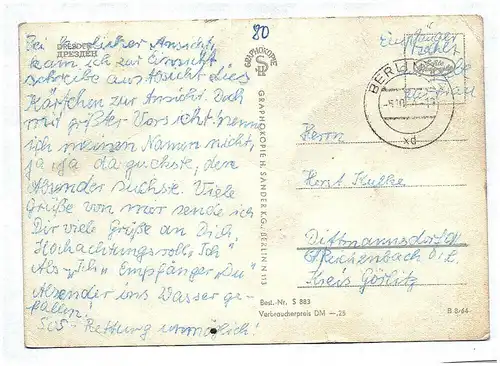 80
DRESDEN
ДРЕЗДЕН
Bei herrlicher Ansicht,
kam ich zur Einsicht
schreibe aus Absicht dies
Kärtchen zur Ansicht. Doch
mit größter Vorsicht nenn
ich meinen Namen nicht,
ja, ja da guckste, den
Absender suchste. Viele
Grüße von mir sende ich
Dir viele Grüße an Dich
Hochachtungsvoll "Ich"
Abs. "Ich" Empfänger "Du"
Absender ins Wasser ge-
fallen!
SOS - Rettung unmöglich!
GRAPHOKOPIE
GRAPHOKOPIE H. SANDER K.G., BERLIN N 113
Empfänger
zahlt
BERLIN
xd
Herrn
Horst
Dittmannsdorf
Reichenbach O.L.
Kreis Görlitz
Best.-Nr. S 883
Verbraucherpreis DM —.25
B 8/64